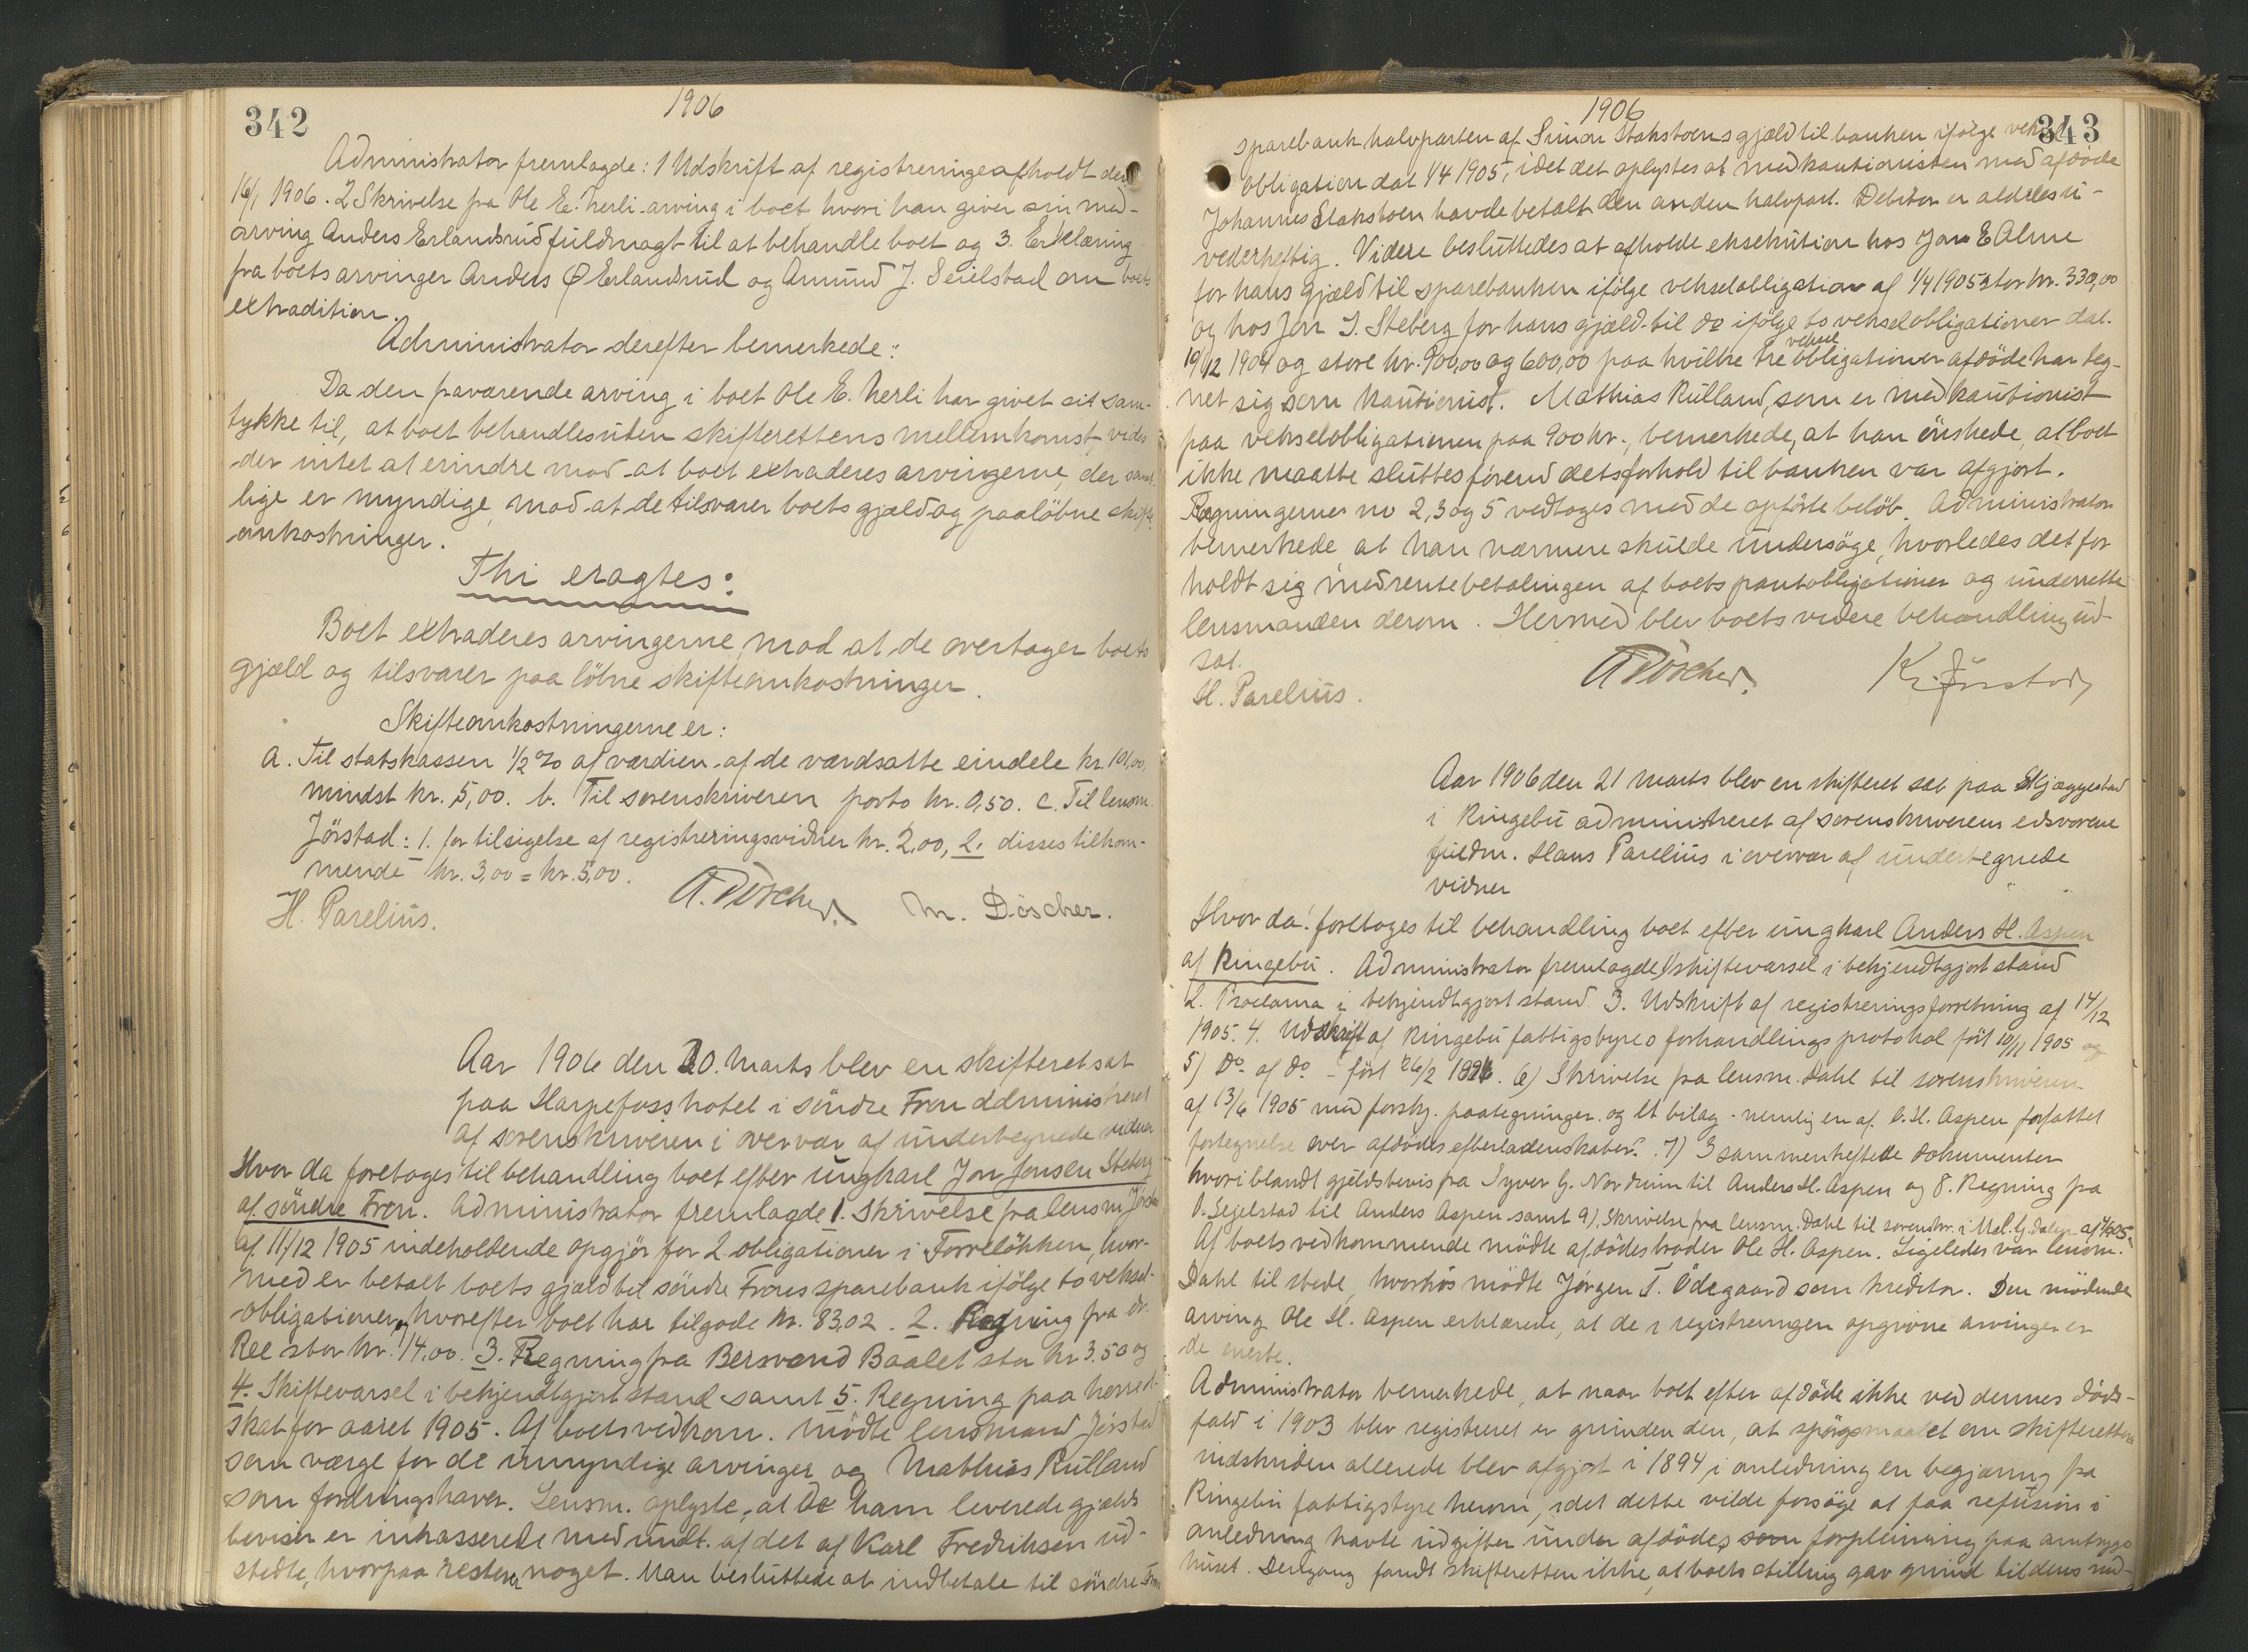 342
1906
Administrator fremlagde: 1 Udskrift af registreringe afholdt den
16/1 1906. 2 Skrivelse fra Ole E. Herli arving i boet hvori han giver sin med-
arving Anders Erlandsrud fuldmagt til at behandle boet og 3. Erklæring
fra boets arvinger Anders O Erlandsrud og Amund J. Seielstad om boets
extradition.
Administrator derefter bemerkede:
Da den fraværende arving i boet Ole E. Herli har givet sit sam-
tykke til, at boet behandles uten skifterettens mellemkomst, vides
der intet at erindre mod at boet extraderes arvingerne, der samt-
lige er myndige, mod at de tilsvarer boets gjæld og paaløbne skifte-
omkostninger.
Thi eragtes:
Boet extraderes arvingerne, mod at de overtager boets
gjæld og tilsvarer paa løbne skifteomkostninger.
Skifteomkostningerne er:
a. Til statskassen ½ % af værdien af de værdsatte eiendele kr. 101,00,
mindst kr. 5,00. b. Til sorenskriveren porto kr. 0,50. c. Til lensm.
Jörstad: 1. for tilsigelse af registreringsvidner kr. 2,00, 2. disses tilkom-
mende kr. 3,00 = kr. 5,00.
H. Parelius. A. Döscher. M. Döscher.
Aar 1906 den 20. Marts blev en skifteret sat
paa Harpefoss hotel i söndre Fron administreret
af sorenskriveren i overvær af undertegnede vidner
Hvor da foretoges til behandling boet efter ungkarl Jon Jonsen Steberg
af söndre Fron. Administrator fremlagde 1. Skrivelse fra lensm Jörstad
af 11/12 1905 indeholdende opgjör for 2 obligationer i Forrelökken, hvor-
med er betalt boets gjæld til söndre Frons sparebank ifölge to veksel-
obligationer, hvorefter boet har tilgode kr. 83,02. 2. Regning fra dr.
Ree stor kr. 14,00. 3. Regning fra Bersvend Baalet stor kr 3.50 og
4. Skiftevarsel i bekjendtgjort stand samt 5. Regning paa herred-
skat for aaret 1905. Af boets vedkom. mödte lensmand Jörstad
som værge for de umyndige arvinger og Mathias Rulland
som fordringshaver. Lensm. oplyste, at de ham leverede gjælds
beviser er inkasserede med undt. af det af Karl Fredriksen ud-
stedte, hvorpaa resterer noget. Man besluttede at indbetale til söndre Frons
343
1906
sparebank halvparten af Simon Stakstoens gjæld til banken ifölge veksel
obligation dat 1/4 1905, idet det oplystes at medkautionisten med afdöde
Johannes Stakstoen havde betalt den anden halvpart. Debitor er aldeles u-
vederheftig. Videre besluttedes at afholde eksekution hos Jon E Alme
for hans gjæld til sparebanken ifölge vekselobligation af 1/4 1905 stor kr. 330,00
og hos Jon S. Steberg for hans gjæld til do ifölge to vekselobligationer dat.
10/12 1904 og store kr. 900,00 og 600,00 paa hvilke tre veksel obligationer afdöde har teg-
net sig som kautionist. Mathias Rulland, som er medkautionist
paa vekselobligationen paa 900 kr., bemerkede, at han önskede, at boet
ikke maatte sluttes förend dets forhold til banken var afgjort.
Regningerne no 2, 3 og 5 vedtoges med de opförte belöb. Administrator
bemerkede at han nærmere skulde undersöge, hvorledes det for
holdt sig med rentebetalingen af boets pantobligationer og underrette
lensmanden derom. Hermed blev boets videre behandling ud-
sat.
H. Parelius. A Döscher. K. Jörstad
Aar 1906 den 21 marts blev en skifteret sat paa Skjæggestad
i Ringebu administreret af sorenskriverens edsvorene
fuldm. Hans Parelius i overvær af undertegnede
vidner
Hvor da: foretoges til behandling boet efter ungkarl Anders H. Aspen
af Ringebu. Administrator fremlagde 1) skiftevarsel i bekjendtgjort stand
2. Proclama i bekjendtgjort stand 3. Udskrift af registreringsforretning af 14/12
1905. 4. Udskrift af Ringebu fattigstyres forhandlings protokol fört 10/11 1905 og
5) Do. af do - fört 26/2 1896. 6) Skrivelse fra lensm. Dahl til sorenskriveren
af 13/6 1905 med forskj. paategninger og et bilag - nemlig en af O. H. Aspen forfattet
fortegnelse over afdödes efterladenskaber. 7) 3 sammenheftede dokumenter
hvoriblandt gjeldsbevis fra Syver G. Nordrum til Anders H. Aspen og 8. Regning fra
O. Sejelstad til Anders Aspen samt 9) Skrivelse fra lensm. Dahl til sorenskr. i
Af boets vedkommende mödte afdödes broder Ole H. Aspen. Ligeledes var lensm.
Dahl til stede, hvorhos mödte Jörgen T. Ödegaard som kreditor. Den mödende
arving Ole H. Aspen erklærede, at de i registreringen opgivne arvinger er
de eneste.
Administrator bemerkede, at naar boet efter afdöde ikke ved dennes döds-
fald i 1903 blev registreret er grunden den, at spörgsmaalet om skifterettens
indskriden allerede blev afgjort i 1894 i anledning en begjæring fra
Ringebu fattigstyre herom, idet dette vilde forsöge at faa refusion i
anledning havte udgifter under afdödes som forpleining paa amtssyge
huset. Dengang fandt skifteretten ikke, at boets stilling gav grund til dens ind-